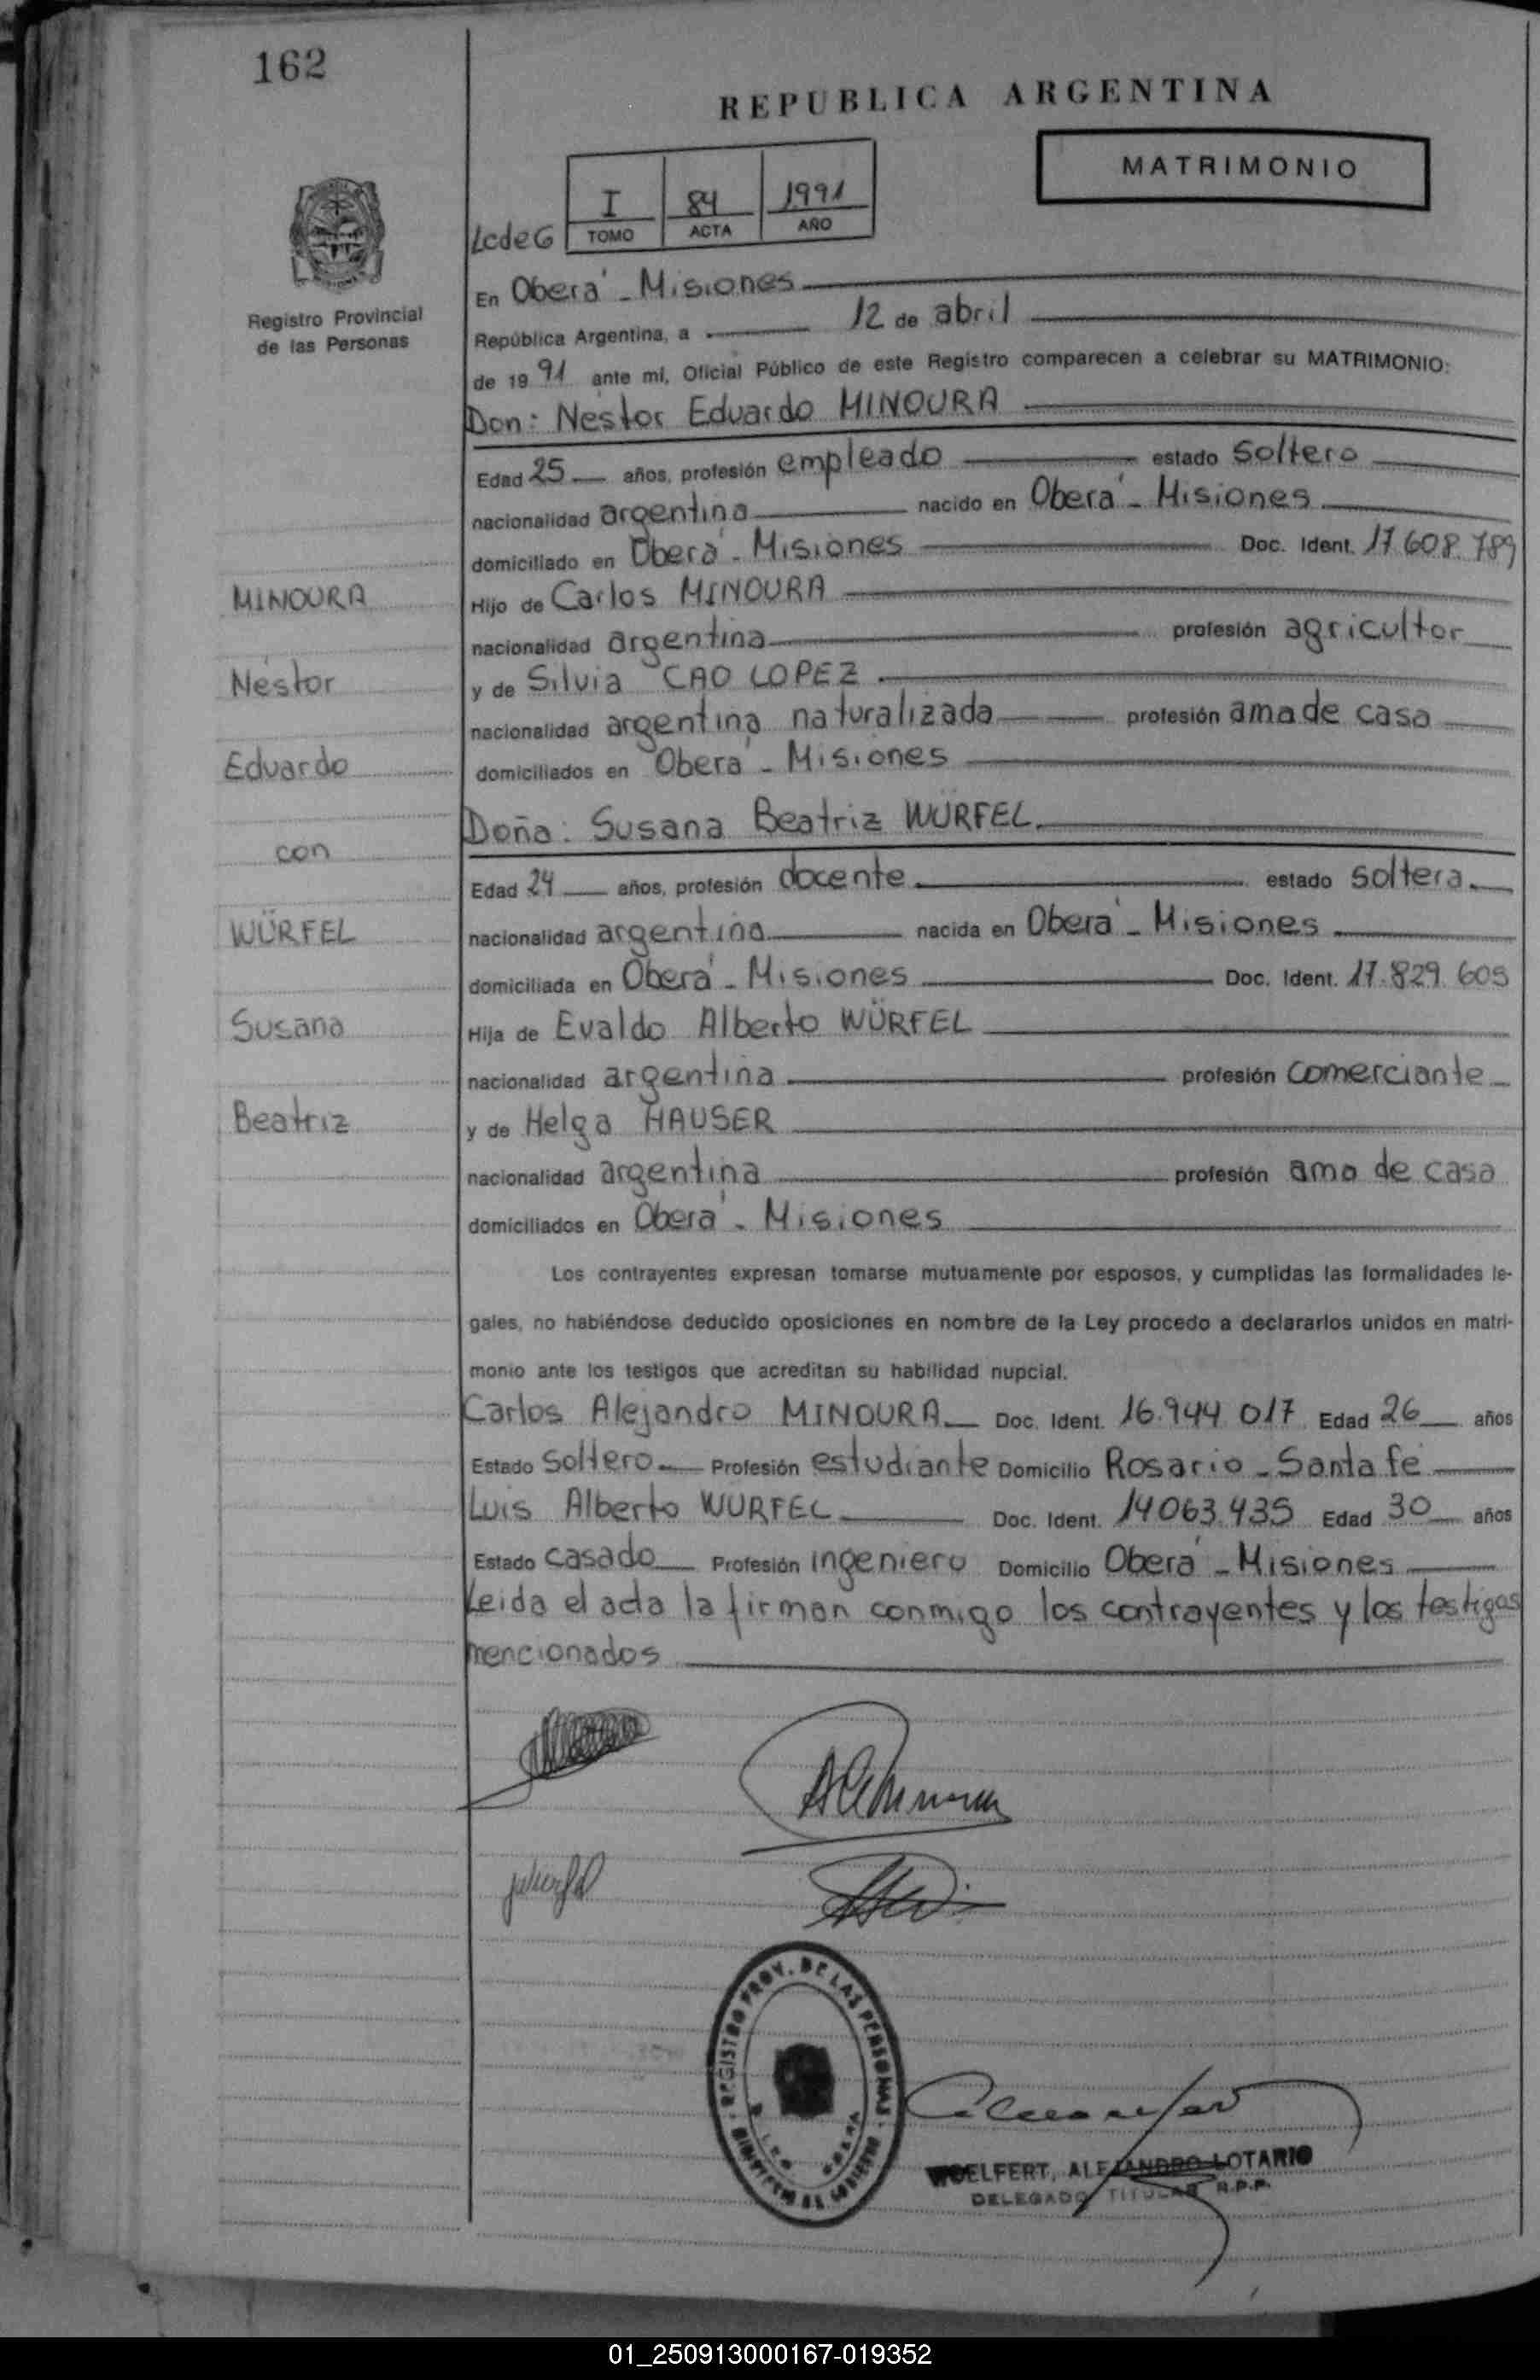 162
REPUBLICA ARGENTINA
MATRIMONIO
I 84 1991
LcdeG TOMO ACTA AÑO
Registro Provincial
de las Personas
En Oberá - Misiones
República Argentina, a 12 de abril
de 19 91 ante mi, Oficial Público de este Registro comparecen a celebrar su MATRIMONIO:
Don: Néstor Eduardo MINOURA
Edad 25 años, profesión empleado estado soltero
nacionalidad argentina nacido en Oberá - Misiones
domiciliado en Oberá - Misiones Doc. Ident. 17.608.789
MINOURA
Hijo de Carlos MINOURA
nacionalidad argentina profesión agricultor
Néstor
y de Silvia CAO LOPEZ
nacionalidad argentina naturalizada profesión ama de casa
Eduardo
domiciliados en Oberá - Misiones
Doña: Susana Beatriz WÜRFEL
con
Edad 24 años, profesión docente estado soltera
WÜRFEL
nacionalidad argentina nacida en Oberá - Misiones
domiciliada en Oberá - Misiones Doc. Ident. 17.829.605
Susana
Hija de Evaldo Alberto WÜRFEL
nacionalidad argentina profesión comerciante
Beatriz
y de Helga HAUSER
nacionalidad argentina profesión ama de casa
domiciliados en Oberá - Misiones
Los contrayentes expresan tomarse mutuamente por esposos, y cumplidas las formalidades le-
gales, no habiéndose deducido oposiciones en nombre de la Ley procedo a declararlos unidos en matri-
monio ante los testigos que acreditan su habilidad nupcial.
Carlos Alejandro MINOURA Doc. Ident. 16.944.017 Edad 26 años
Estado soltero Profesión estudiante Domicilio Rosario - Santa fé
Luis Alberto WÜRFEL Doc. Ident. 14063.435 Edad 30 años
Estado casado Profesión ingeniero Domicilio Oberá - Misiones
Leida el acta la firman conmigo los contrayentes y los testigos
mencionados
REGISTRO PROV. DE LAS PERSONAS
MINISTERIO DE GOBIERNO
WOELFERT, ALEJANDRO LOTARIO
DELEGADO TITULAR R.P.P.
01_250913000167-019352